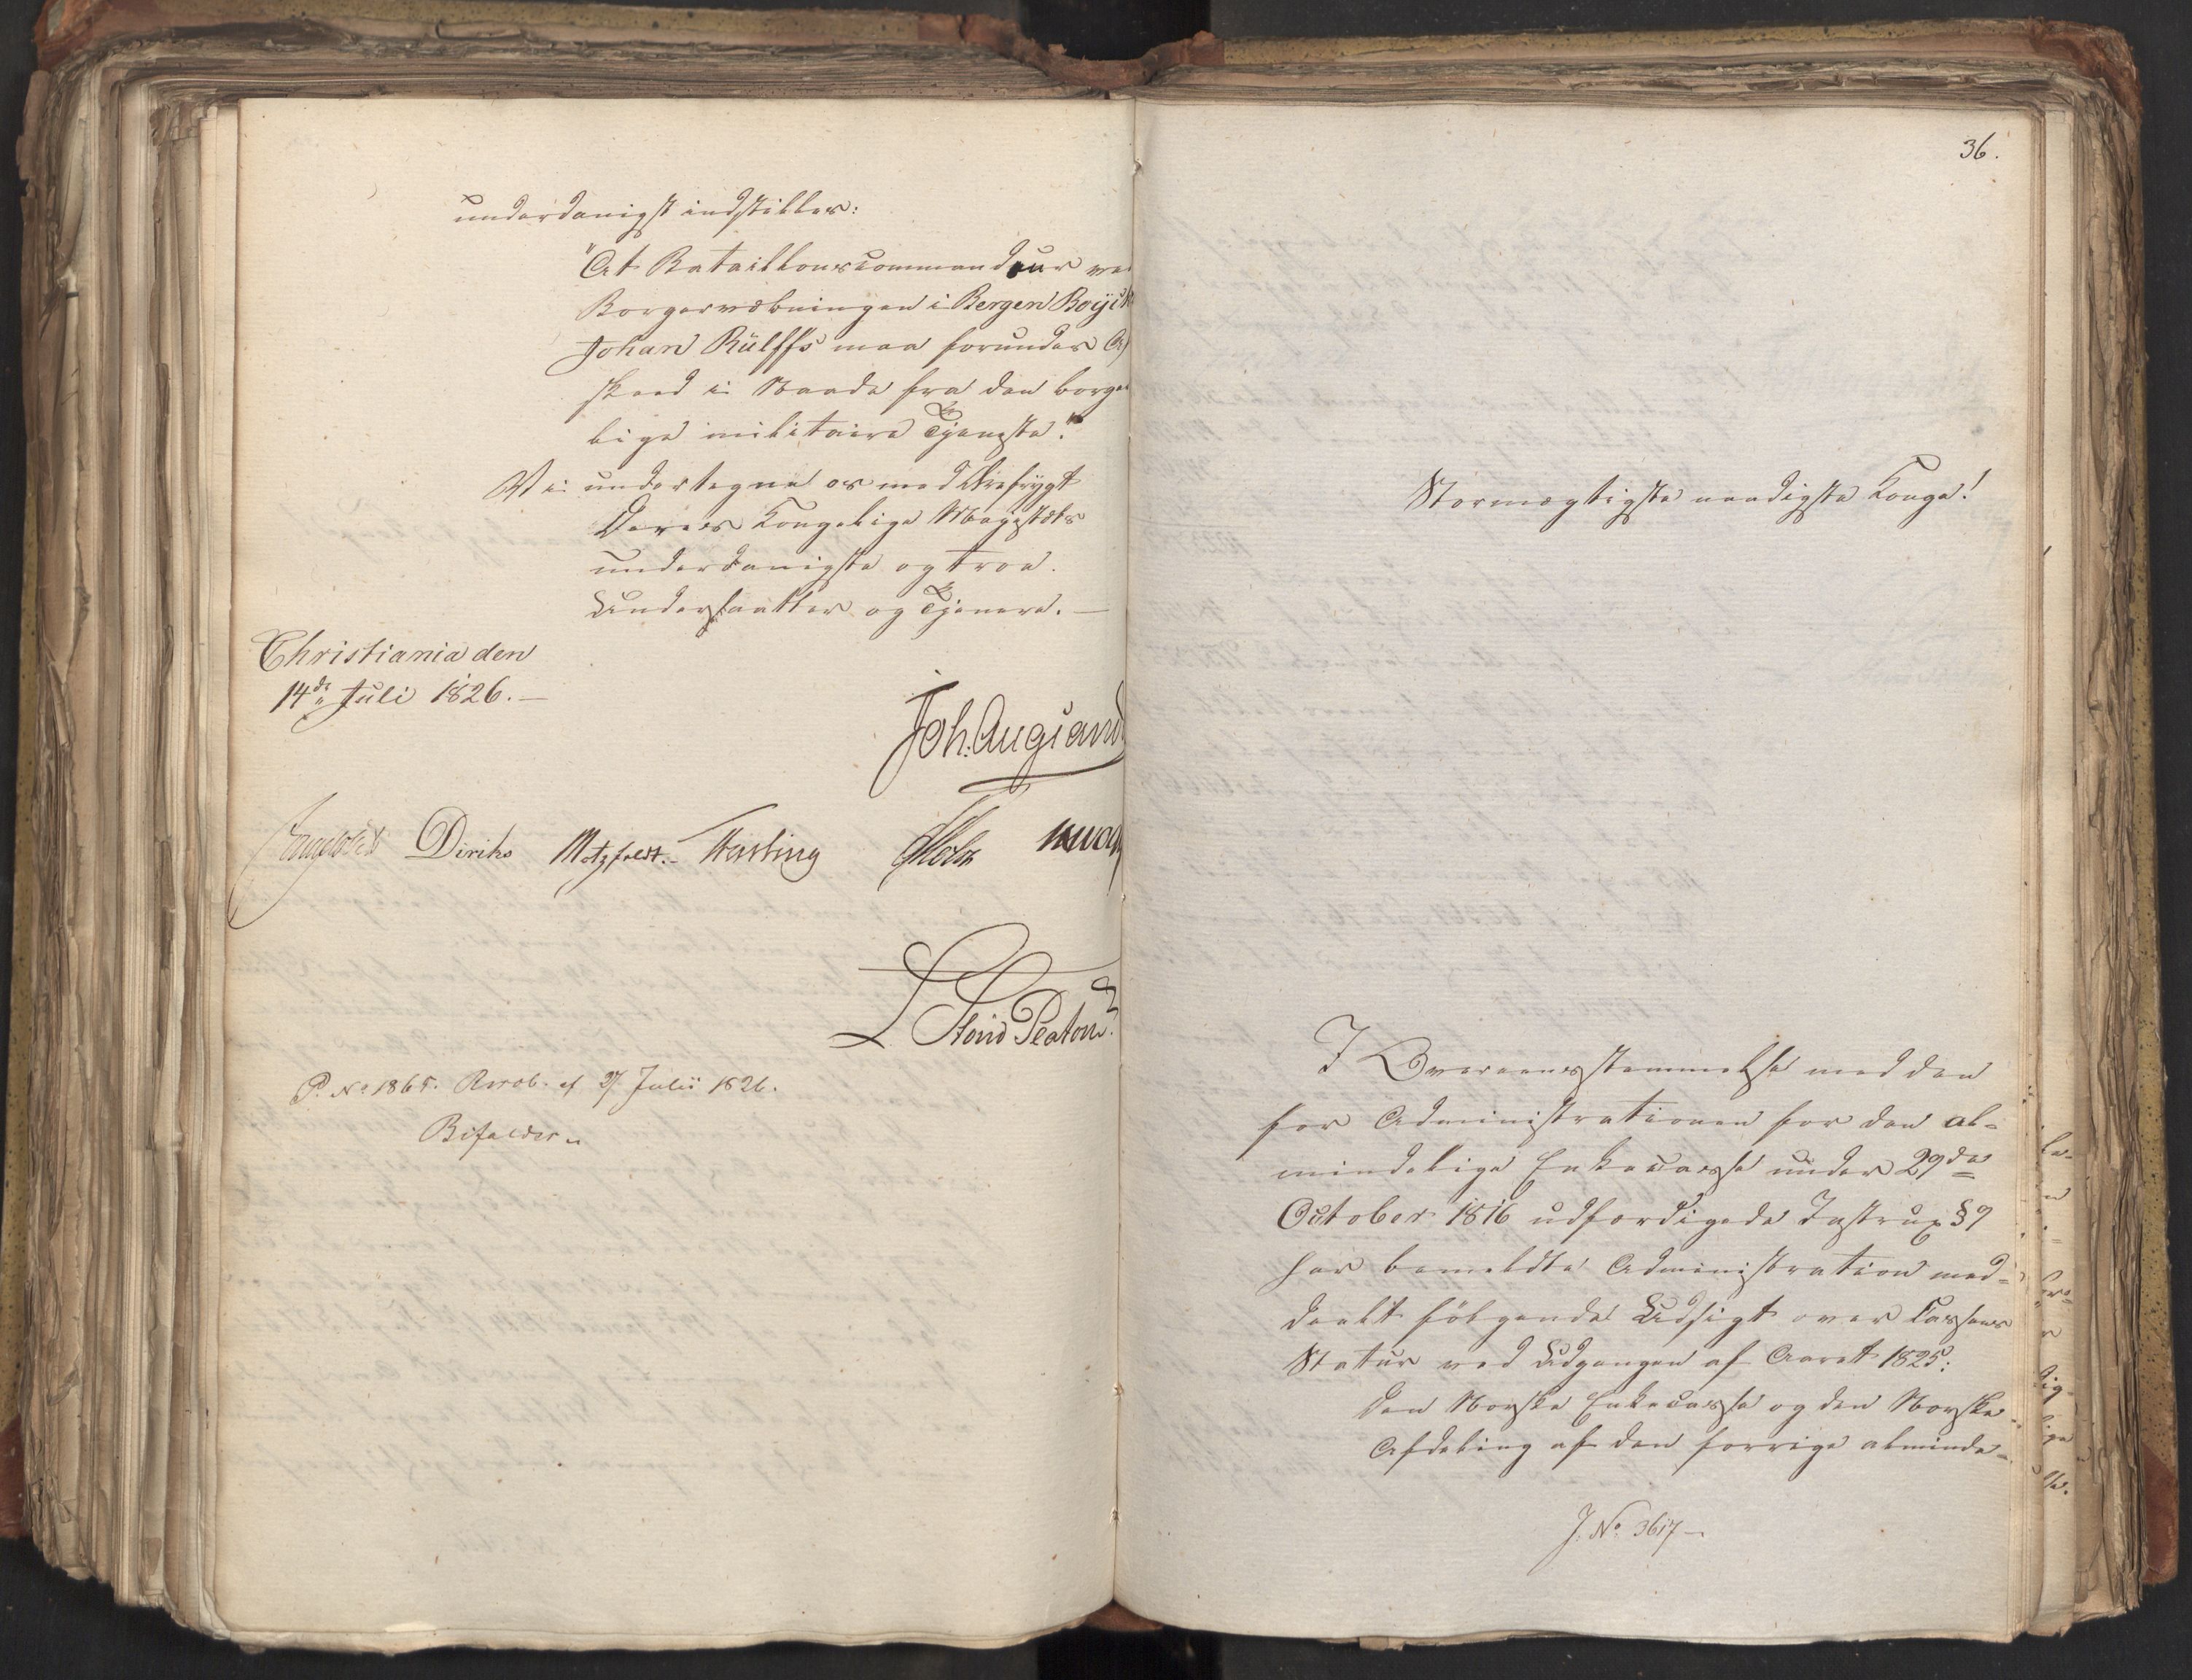 underdanigst indstilles:
"At Bataillonscommandeur ve
Borgervæbningen i Bergen Boÿe
Johan Rülffs maa forundes Af
skeed i Naade fra den borger
lige militaire Tjeneste."
Vi undertegne os med Ærefrygt
Deres Kongelige Majestæts
underdanigste og troe
Undersaatter og Tjenere. —
Christiania den
14de Juli 1826. —
Joh. Aug Sand
Diriks Motzfeldt. Fasting Holst
P. No 1865. Resol. af 27 Julii 1826.
Bifaldes
36.
Stormægtigste naadigste Konge!
I Overeensstemmelse med den
for Administrationen for den al=
mindelige Enkecasse under 29de
October 1816 udfærdigede Instrux § 9
har bemeldte Administration med=
deelt følgende Udsigt over Cassens
Status ved Udgangen af Aaret 1825:
Den Norske Enkecasse og den Norske
Afdeling af den forrige alminde=
J. No. 3617 —